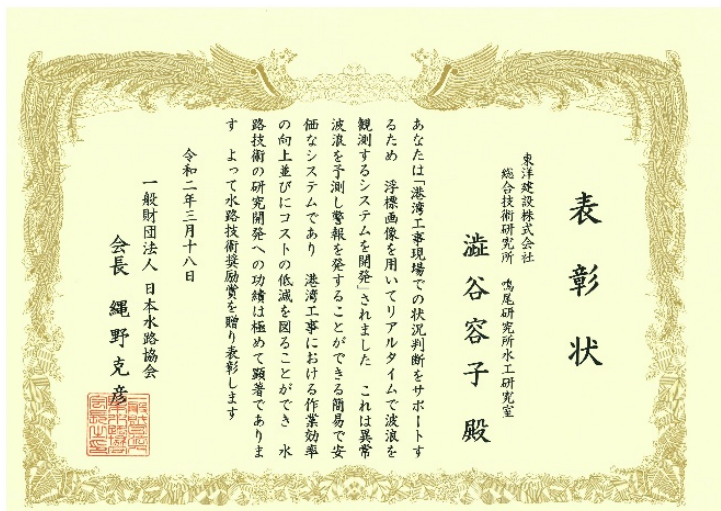 表彰状
東洋建設株式会社
総合技術研究所 鳴尾研究所水工研究室
澁谷容子 殿
あなたは「港湾工事現場での状況判断をサポートす
るため 浮標画像を用いてリアルタイムで波浪を
観測するシステムを開発」されました これは異常
波浪を予測し警報を発することができる簡易で安
価なシステムであり 港湾工事における作業効率
の向上並びにコストの低減を図ることができ 水
路技術の研究開発への功績は極めて顕著でありま
す よって水路技術奨励賞を贈り表彰します
令和二年三月十八日
一般財団法人 日本水路協会
会長 縄野克彦